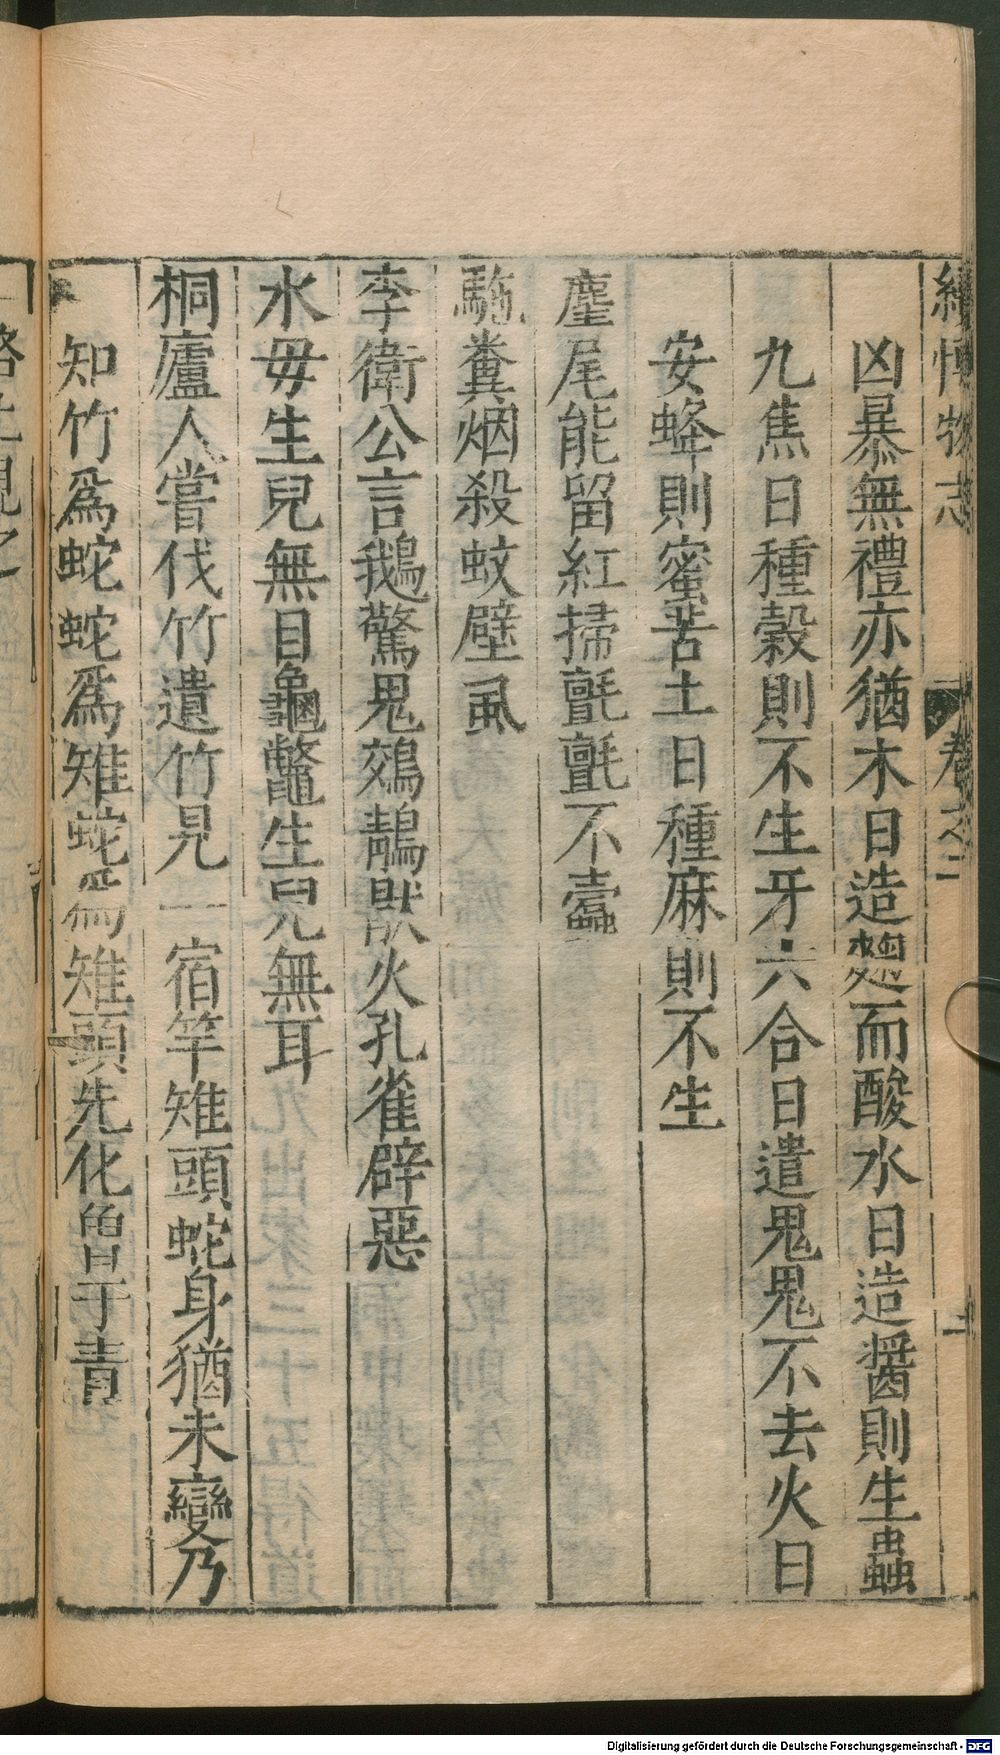 物志
卷之二
凶暴無禮亦猶木日造麯而酸水日造醬則生蟲
九焦日種穀則不生牙六合日遣鬼鬼不去火日
安蜂則蜜苦土日種麻則不生
麈尾能留紅掃氈氈不蠹
駞糞烟殺蚊壁虱
李衛公言鵝驚鬼鵁鶄厭火孔雀辟惡
水母生兒無目龜鼈生兒無耳
桐廬人嘗伐竹遺竹見一宿竿雉頭蛇身猶未變乃
知竹爲蛇蛇爲雉蛇爲雉頭先化身于責
Digitalisierung gefördert durch die Deutsche Forschungsgemeinschaft - DFG